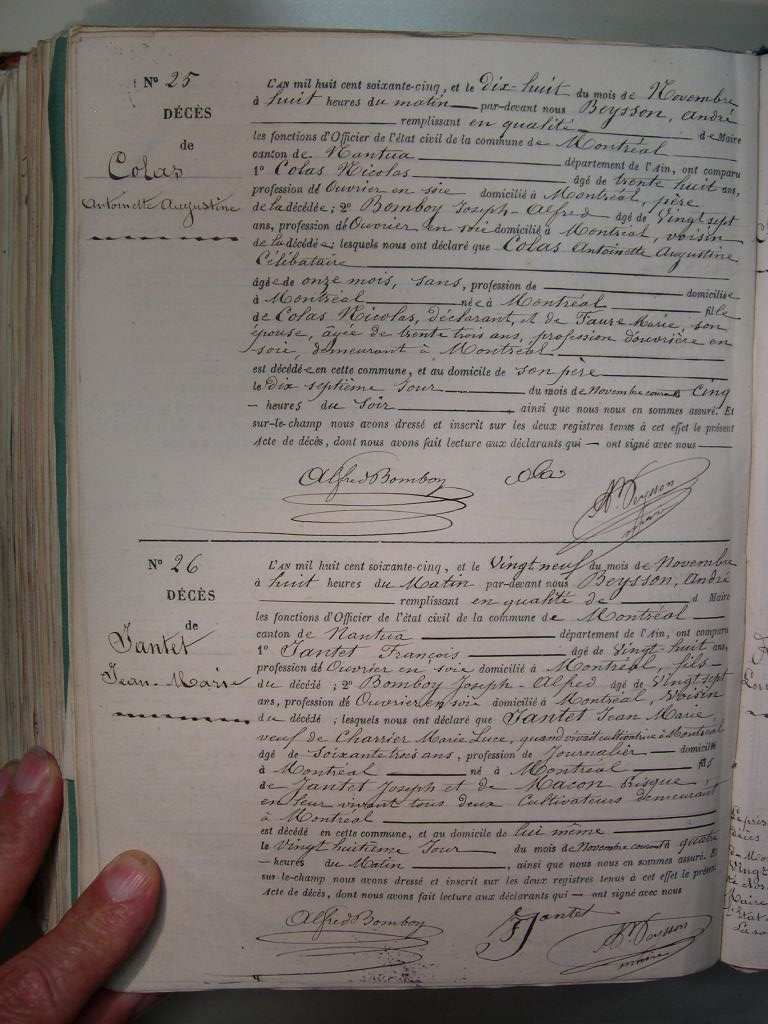 N° 25
DÉCÈS
de
Colas
Antoinette Augustine
L'AN mil huit cent soixante-cinq, et le Dix-huit du mois de Novembre
à huit heures du matin par-devant nous Beysson, André
remplissant en qualité de Maire
les fonctions d'Officier de l'état civil de la commune de Montréal
canton de Nantua département de l'Ain, ont comparu
1° Colas Nicolas âgé de trente huit ans,
profession de Ouvrier en soie domicilié à Montréal, père
de la décédée; 2° Bomboy Joseph-Alfred âgé de Vingt sept
ans, profession de Ouvrier en soie domicilié à Montréal, voisin
de la décédée; lesquels nous ont déclaré que Colas Antoinette Augustine
Célibataire
âgée de onze mois, sans, profession de domiciliée
à Montréal née à Montréal fille
de Colas Nicolas, déclarant, et de Faure Marie, son
épouse, âgée de trente trois ans, profession d'ouvrière en
soie, demeurant à Montréal.
est décédée en cette commune, et au domicile de son père
le dix septième Jour du mois de Novembre courant à Cinq
heures du Soir ainsi que nous nous en sommes assuré. Et
sur-le-champ nous avons dressé et inscrit sur les deux registres tenus à cet effet le présent
Acte de décès, dont nous avons fait lecture aux déclarants qui ont signé avec nous
Alfred Bomboy Colas An. Beysson
maire
N° 26
DÉCÈS
de
Jantet
Jean-Marie
L'AN mil huit cent soixante-cinq, et le Vingt neuf du mois de Novembre
à huit heures du Matin par-devant nous Beysson, André
remplissant en qualité de d Maire
les fonctions d'Officier de l'état civil de la commune de Montréal
canton de Nantua département de l'Ain, ont comparu
1° Jantet François âgé de Vingt-huit ans,
profession de Ouvrier en soie domicilié à Montréal, fils
du décédé; 2° Bomboy Joseph-Alfred âgé de Vingt sept
ans, profession de Ouvrier en soie domicilié à Montréal, Voisin
du décédé; lesquels nous ont déclaré que Jantet Jean Marie
veuf de Charrier Marie Luce, quand vivait cultivatrice à Montréal
âgé de Soixante trois ans, profession de Journalier domicilié
à Montréal né à Montréal fils
de Jantet Joseph et de Macon
en leur vivant tous deux Cultivateurs demeurant
à Montréal
est décédé en cette commune, et au domicile de lui même
le Vingt huitième Jour du mois de Novembre courant à quatre
heures du Matin, ainsi que nous nous en sommes assuré. Et
sur-le-champ nous avons dressé et inscrit sur les deux registres tenus à cet effet le présent
Acte de décès, dont nous avons fait lecture aux déclarants qui ont signé avec nous
Alfred Bomboy F Jantet An. Beysson
maire